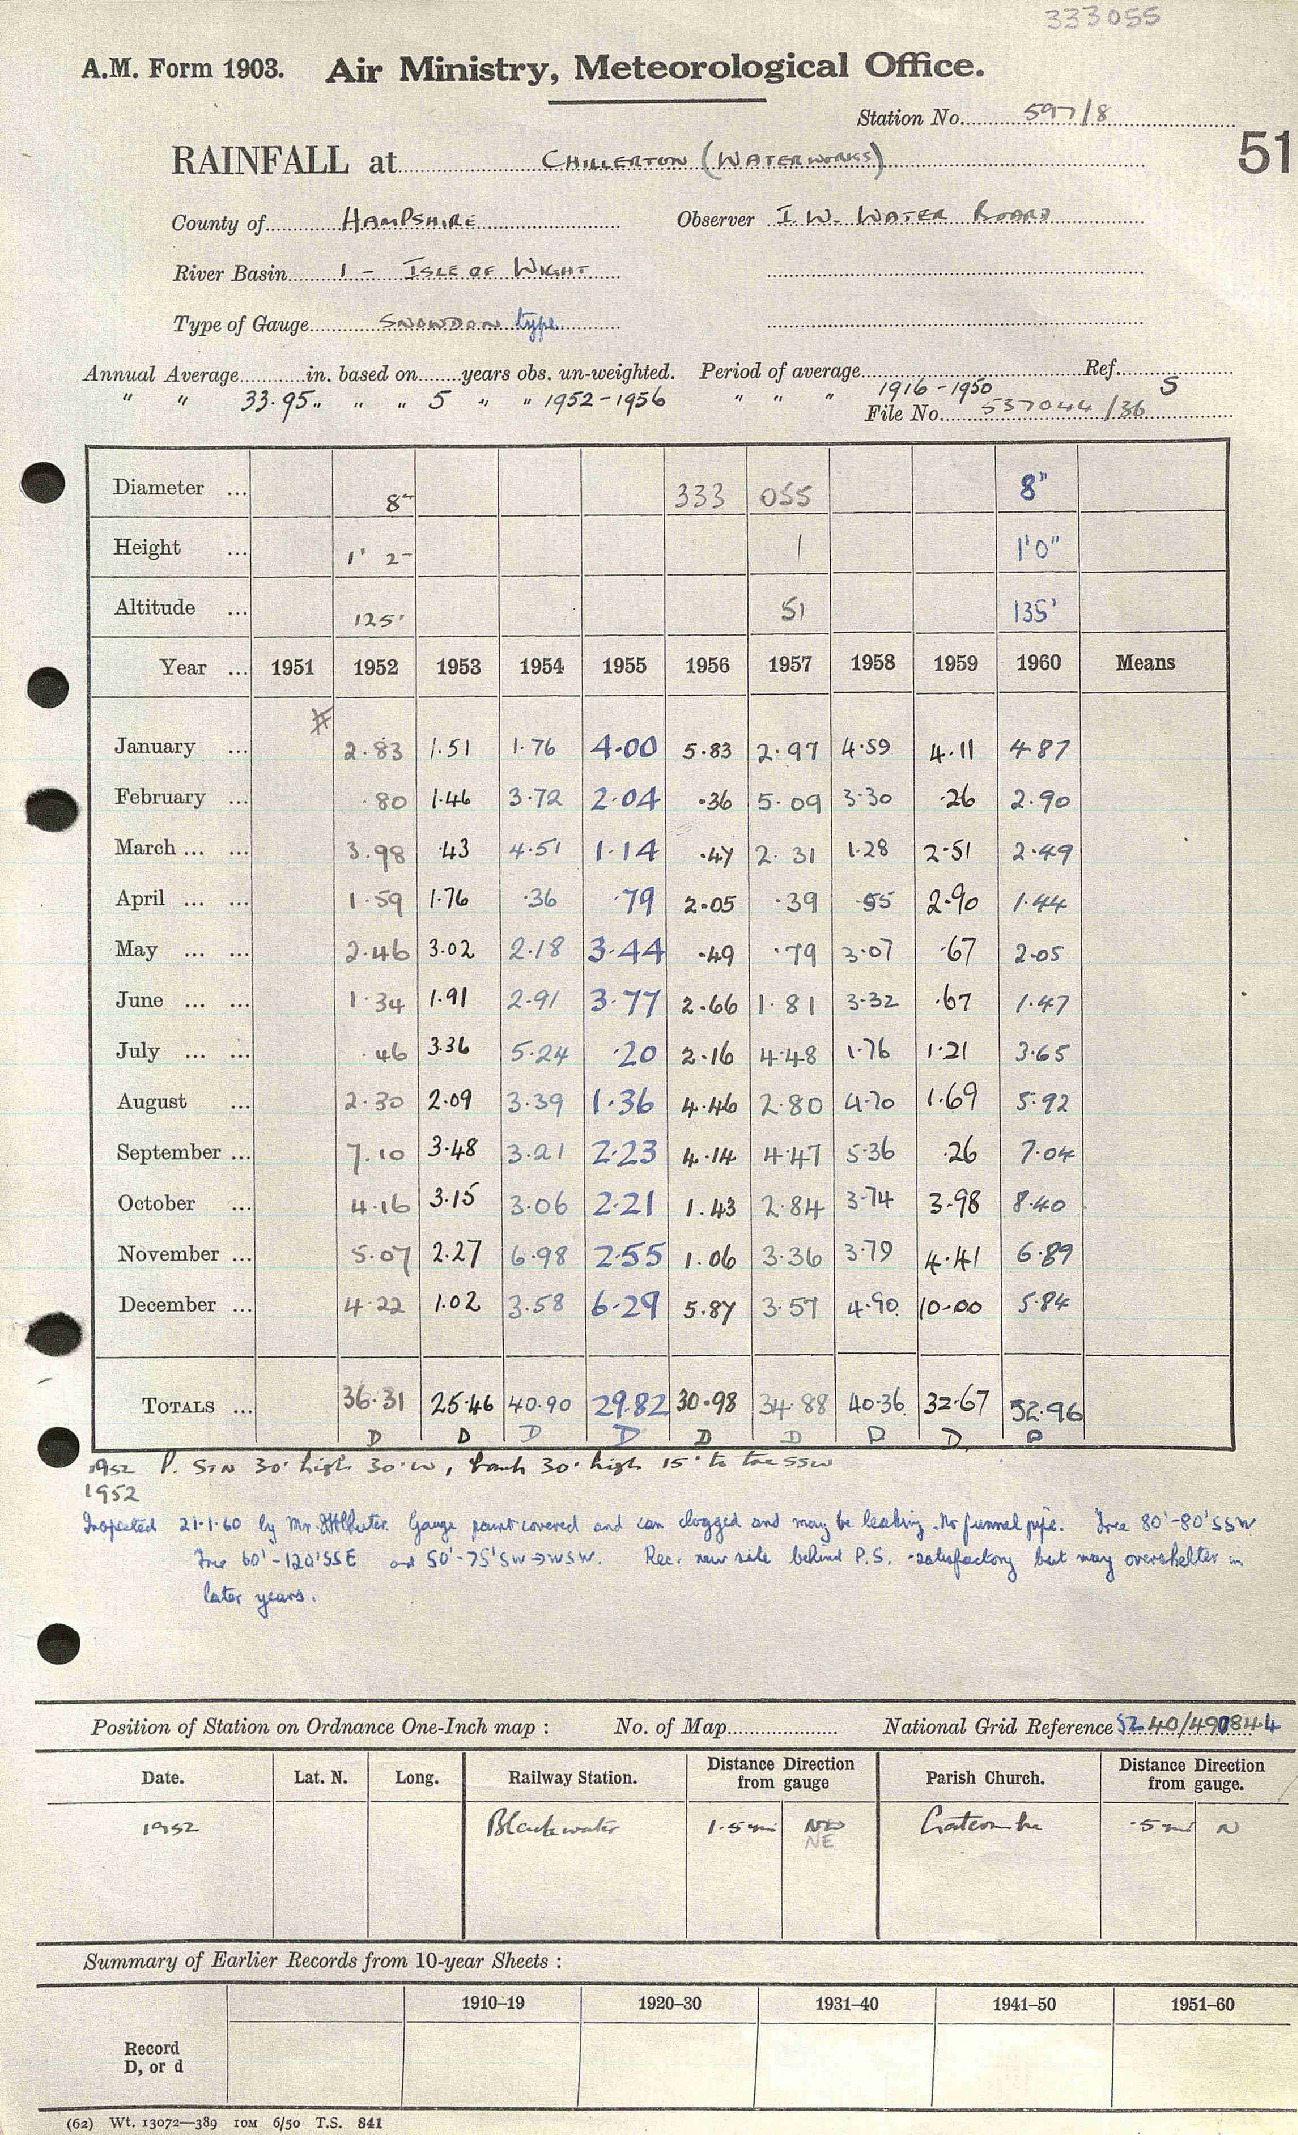 333055
A.M. Form 1903. Air Ministry, Meteorological Office.
Station No. 597/8
51
RAINFALL at CHILLERTON (WATERWORKS)
County of HAMPSHIRE Observer I.W. WATER BOARD
River Basin 1 - ISLE OF WIGHT
Type of Gauge SNOWDON type
Annual Average in. based on years obs. un-weighted. Period of average Ref.
" " 33.95 " " " 5 " " 1952-1956 " " " 1916-1950 S
File No. 537044/36
Diameter ... 8" 333 055 8"
Height ... 1' 2" 1 1'0"
Altitude ... 125' 51 135'
Year ... 1951 1952 1953 1954 1955 1956 1957 1958 1959 1960 Means
January ... 2.83 1.51 1.76 4.00 5.83 2.97 4.59 4.11 4.87
February ... .80 1.46 3.72 2.04 .36 5.09 3.30 .26 2.90
March ... ... 3.98 .43 4.51 1.14 .47 2.31 1.28 2.51 2.49
April ... ... 1.59 1.76 .36 .79 2.05 .39 .55 2.90 1.44
May ... ... 2.46 3.02 2.18 3.44 .49 .79 3.07 .67 2.05
June ... ... 1.34 1.91 2.91 3.77 2.66 1.81 3.32 .67 1.47
July ... ... .46 3.36 5.24 .20 2.16 4.48 1.76 1.21 3.65
August ... 2.30 2.09 3.39 1.36 4.46 2.80 4.70 1.69 5.92
September ... 7.10 3.48 3.21 2.23 4.14 4.47 5.36 .26 7.04
October ... 4.16 3.15 3.06 2.21 1.43 2.84 3.74 3.98 8.40
November ... 5.07 2.27 6.98 2.55 1.06 3.36 3.79 4.41 6.89
December ... 4.22 1.02 3.58 6.29 5.87 3.57 4.90 10.00 5.84
TOTALS ... 36.31 25.46 40.90 29.82 30.98 34.88 40.36 32.67 52.96
D D D D D D D D D
1952 P. STN 30' high 30' W, bank 30' high 15' to the SSW
1952
Inspected 21.1.60 by Mr. Gauge paint covered and can clogged and may be leaking. No funnel pipe. Tree 80'-80' SSW
Tree 60'-120' SSE and 50'-75' SW→WSW. Rec. new site behind P.S. - satisfactory but may overshelter in
later years.
Position of Station on Ordnance One-Inch map : No. of Map National Grid Reference SZ 40/490844
Date. Lat. N. Long. Railway Station. Distance Direction from gauge Parish Church. Distance Direction from gauge.
1952 Blackwater 1.5 mi NE Gatcombe .5 mi N
Summary of Earlier Records from 10-year Sheets :
1910–19 1920–30 1931–40 1941–50 1951–60
Record
D, or d
(62) Wt. 13072—389 10M 6/50 T.S. 841